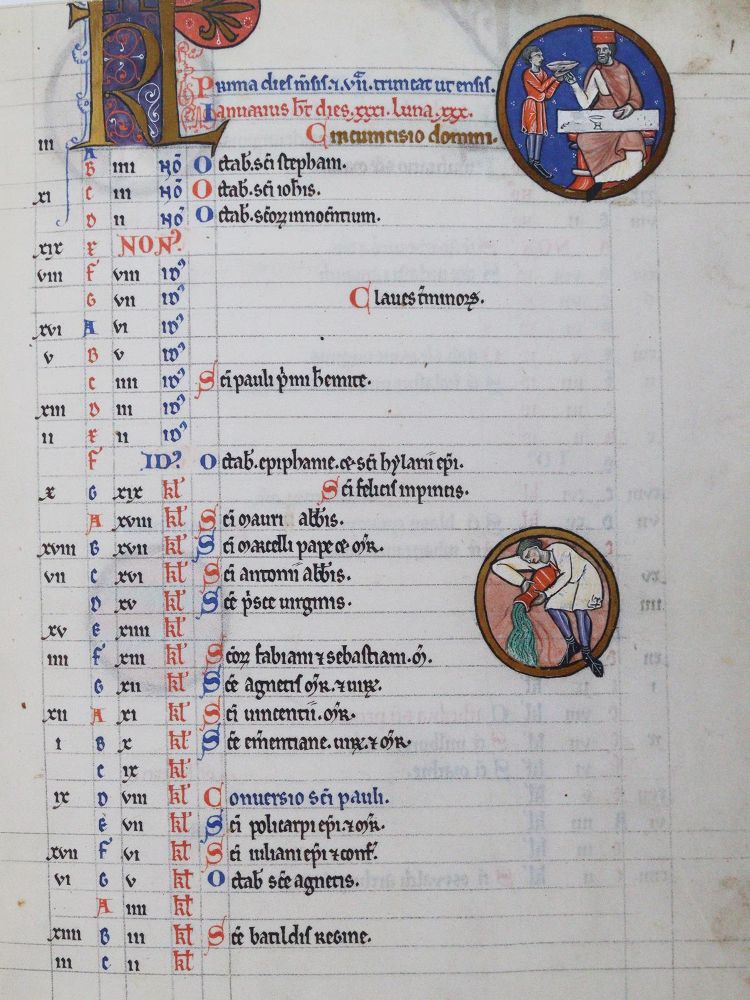 KL Prima dies m̄sis ⁊ vii. truncat ut ensis.
Ianuarius h̄t dies .xxxi. luna .xxx.
iii A Circumcisio domini.
B iiii NO Octab. sc̄i stephani.
xi C iii NO Octab. sc̄i ioh̄is.
D ii NO Octab. sc̄oꝝ innocentium.
xix E NON
viii F viii ID
G vii ID Claues
xvi A vi ID
v B v ID
C iiii ID Sc̄i pauli p̄mi h̄emite.
xiii D iii ID
ii E ii ID
F ID Octab. epiphanie. ⁊ sc̄i hylarii ep̄i.
x G xix kl Sc̄i felicis inpincis.
A xviii kl Sc̄i mauri abb̄is.
xviii B xvii kl Sc̄i marcelli pape ⁊ m̄r.
vii C xvi kl Sc̄i antonii abb̄is.
D xv kl Sc̄e p̄sce uirginis.
xv E xiiii kl
iiii F xiii kl Sc̄oꝝ fabiani ⁊ sebastiani. m̄.
G xii kl Sc̄e agnetis m̄r. ⁊ uirḡ.
xii A xi kl Sc̄i uincentii. m̄r.
i B x kl Sc̄e em̄entiane. uirḡ. ⁊ m̄r.
C ix kl
ix D viii kl Conuersio sc̄i pauli.
E vii kl Sc̄i policarpi ep̄i. ⁊ m̄r.
xvii F vi kl Sc̄i iuliani ep̄i ⁊ conf̄.
vi G v kl Octab̄ sc̄e agnetis.
A iiii kl
xiiii B iii kl Sc̄e batildis regine.
iii C ii kl